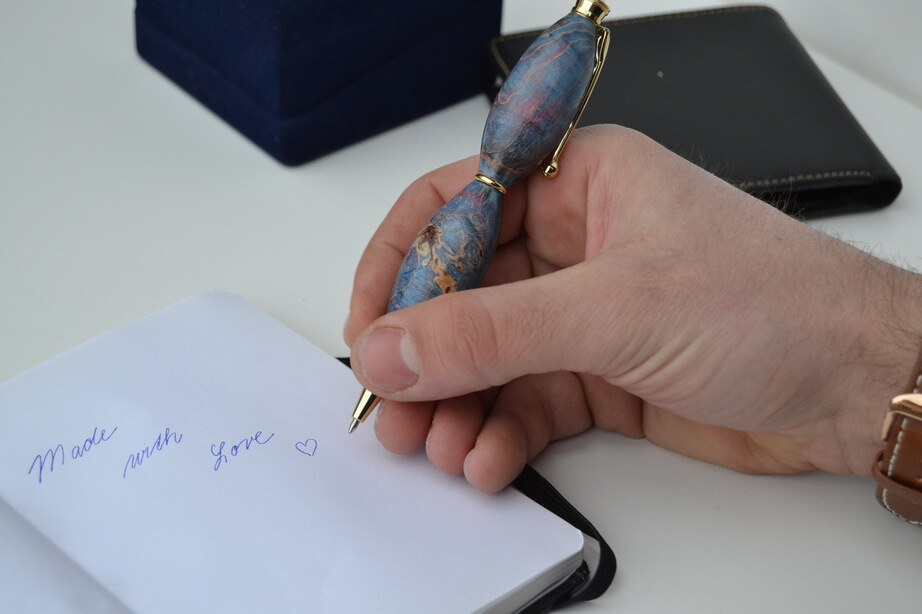 Made with Love ♡